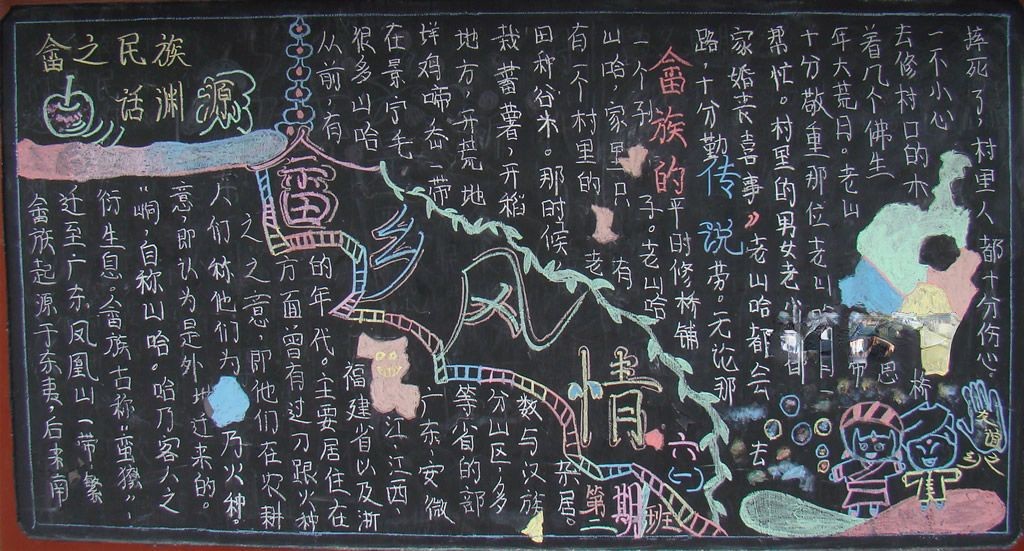 畲之民族
话渊源
畲族起源于东夷,后来南
迁至广东凤凰山一带,繁
衍生息。畲族古称“蛮獠”、
“峒,自称山哈。哈乃客人之
意,即认为是外地迁来的。
人们称他们为 乃火种。
之意,即他们在农耕
方面曾有过刀跟火种
的年代。主要居住在
福建省以及浙
江、江西,
广东、安微
等省的部
分山区,多
数与汉族
杂居。
畲乡风情
畲族的传说
从前,有
很多山哈
在景宁毛
垟鸡啼岙一带
地方,开荒地
栽蕃薯,开稻
田种谷米。那时候
有一个村里的 老
山哈,家里只 有
一个子 子。老山哈
平时修桥铺
路,十分勤劳。无论那
家婚丧喜事,老山哈都会去
帮忙。村里的男女老少
十分敬重那位老山
年大荒日。老山
着几个佛生
去修村口的木 桥
一不小心
摔死了,村里人都十分伤心。
第二期
六(一)班